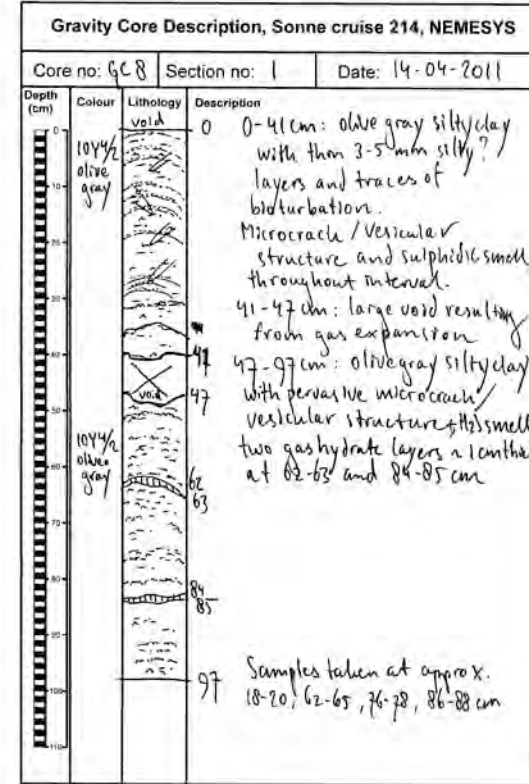 Gravity Core Description, Sonne cruise 214, NEMESYS
Core no: GC8 Section no: 1 Date: 14-04-2011
Depth (cm) Colour Lithology Description
void
0
0
10Y4/2
olive
gray
10
20
30
40
41
void
47
50
10Y4/2
olive
gray
60
62
63
70
80
84
85
90
97
100
110
0-41cm: olive gray silty clay
with thin 3-5 mm silty?
layers and traces of
bioturbation.
Microcrack / Vesicular
structure and sulphidic smell
throughout interval.
41-47 cm: large void resulting
from gas expansion
47-97cm: olive gray silty clay
with pervasive microcrack/
vesicular structure + H2S smell
two gas hydrate layers ~ 1cm thi
at 62-63 and 84-85 cm
Samples taken at approx.
18-20, 62-65, 76-78, 86-88 cm